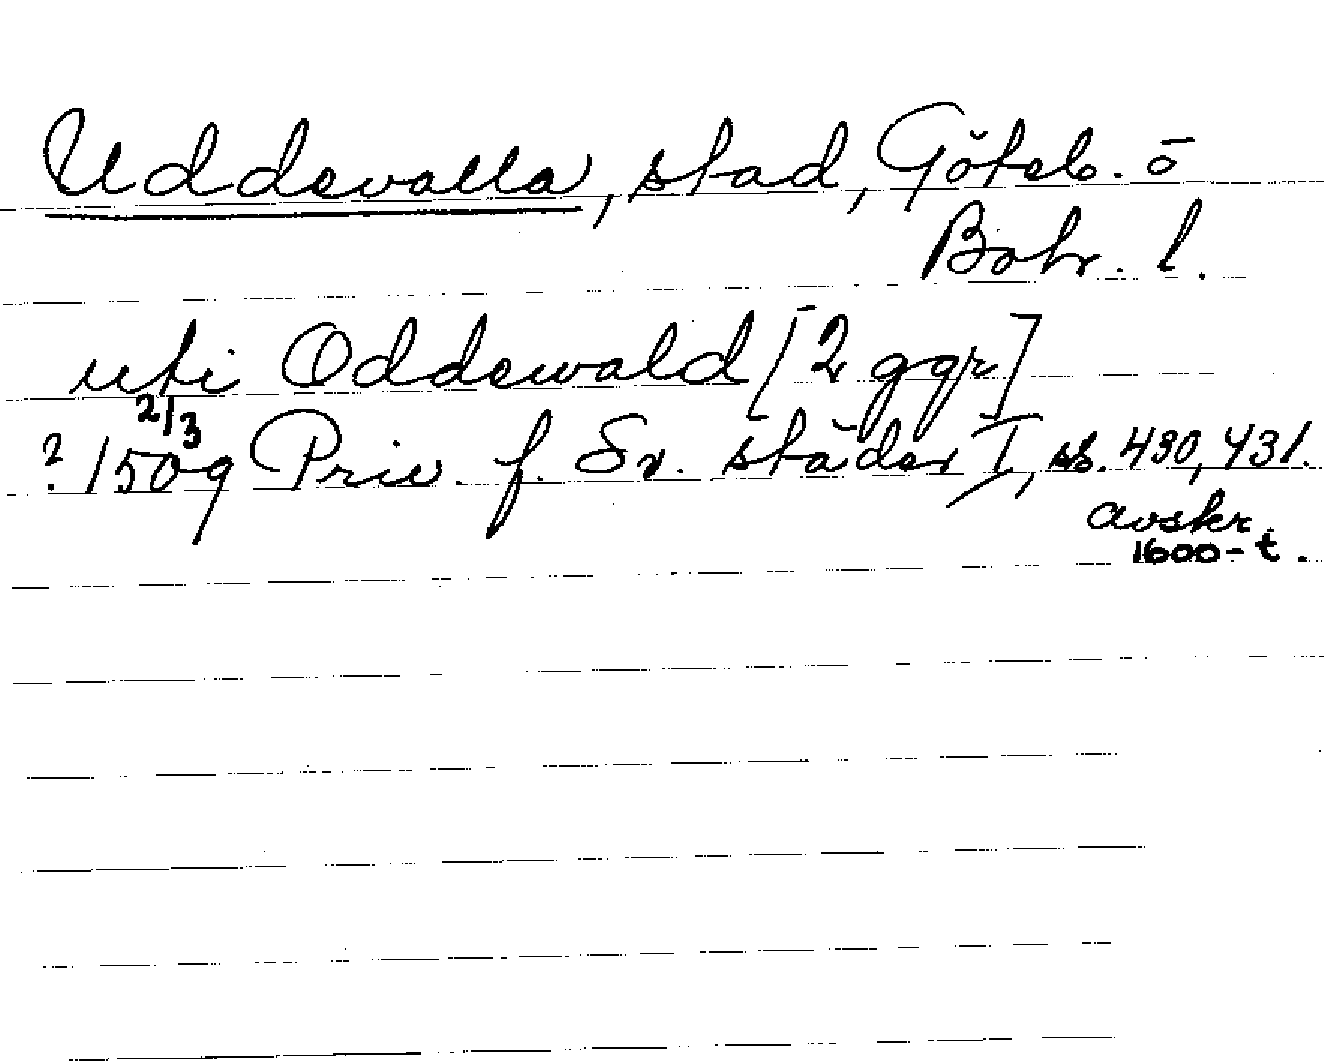 Uddevalla, stad, Göteb. o
Bohr. l.
uti Oddewald [2 ggr]
? 1509 2/3 Priv. f. Sv. städer I, ss. 430, 431.
avskr.
1600-t.